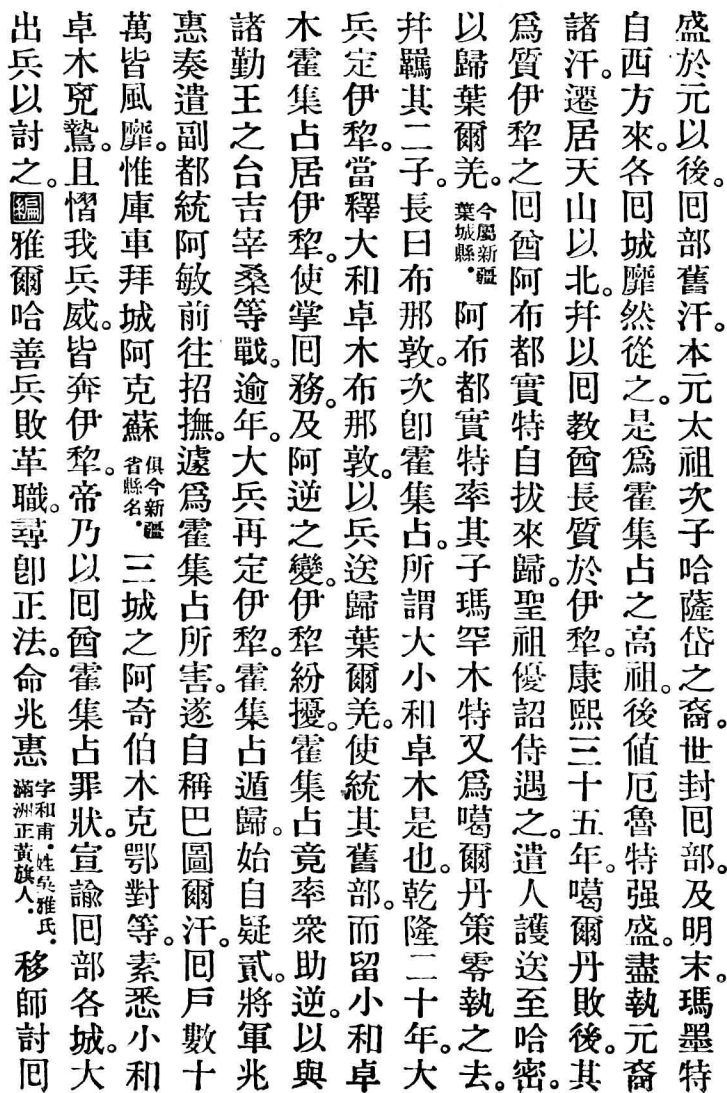 盛於元以後。回部舊汗。本元太祖次子哈薩岱之裔。世封回部。及明末。瑪墨特
自西方來。各回城靡然從之。是爲霍集占之高祖。後値厄魯特强盛。盡執元裔
諸汗。遷居天山以北。幷以回教酋長質於伊犂。康熙三十五年。噶爾丹敗後。其
爲質伊犂之回酋阿布都實特自拔來歸。聖祖優詔侍遇之。遣人護送至哈密。
以歸葉爾羌。今屬新疆葉城縣。阿布都實特率其子瑪罕木特又爲噶爾丹策零執之去。
幷羈其二子。長曰布那敦。次卽霍集占。所謂大小和卓木是也。乾隆二十年。大
兵定伊犂。當釋大和卓木布那敦。以兵送歸葉爾羌。使統其舊部。而留小和卓
木霍集占居伊犂。使掌回務。及阿逆之變。伊犂紛擾。霍集占竟率衆助逆。以與
諸勤王之台吉宰桑等戰。逾年。大兵再定伊犂。霍集占遁歸。始自疑貳。將軍兆
惠奏遣副都統阿敏前往招撫。遽爲霍集占所害。遂自稱巴圖爾汗。回戶數十
萬皆風靡。惟庫車拜城阿克蘇俱今新疆省縣名。三城之阿奇伯木克鄂對等。素悉小和
卓木兇鷙。且慴我兵威。皆奔伊犂。帝乃以回酋霍集占罪狀。宣諭回部各城。大
出兵以討之。編雅爾哈善兵敗革職。尋卽正法。命兆惠字和甫。姓吳雅氏。滿洲正黃旗人。移師討回